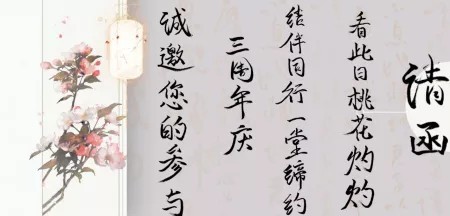 请函
看此日桃花灼灼
结伴同行一堂缔约
三周年庆
诚邀您的参与